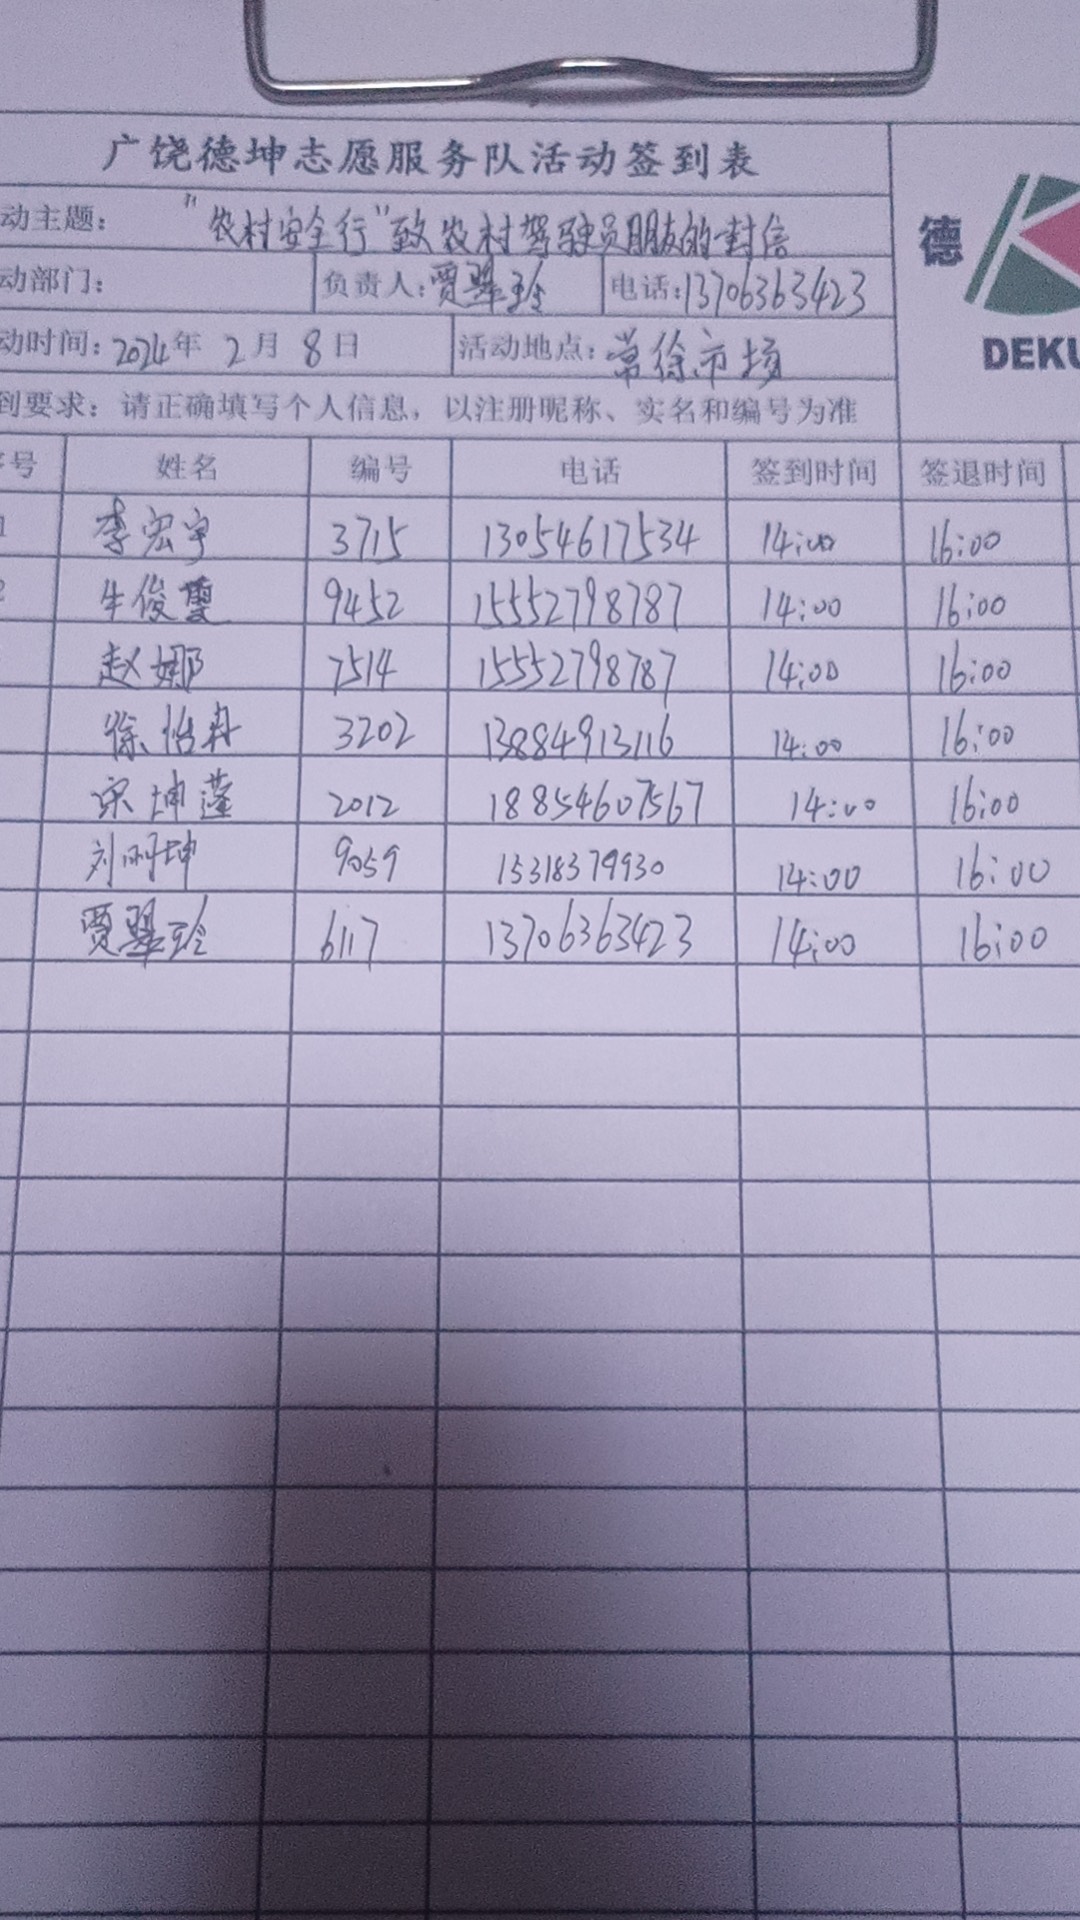 广饶德坤志愿服务队活动签到表
动主题： "农村安全行"致农村驾驶员朋友的封信
德
动部门： 负责人：贾翠玲 电话：13706363423
动时间：2024年 2月 8日 活动地点：常徐市场
DEKU
到要求：请正确填写个人信息，以注册昵称、实名和编号为准
号 姓名 编号 电话 签到时间 签退时间
1 李宏宇 3715 13054617534 14:00 16:00
2 牛俊 9452 15552798787 14:00 16:00
赵娜 7514 15552798787 14:00 16:00
徐怡冉 3202 13884913116 14:00 16:00
宋坤莲 2012 18854607567 14:00 16:00
刘明坤 9059 15318379930 14:00 16:00
贾翠玲 6117 13706363423 14:00 16:00